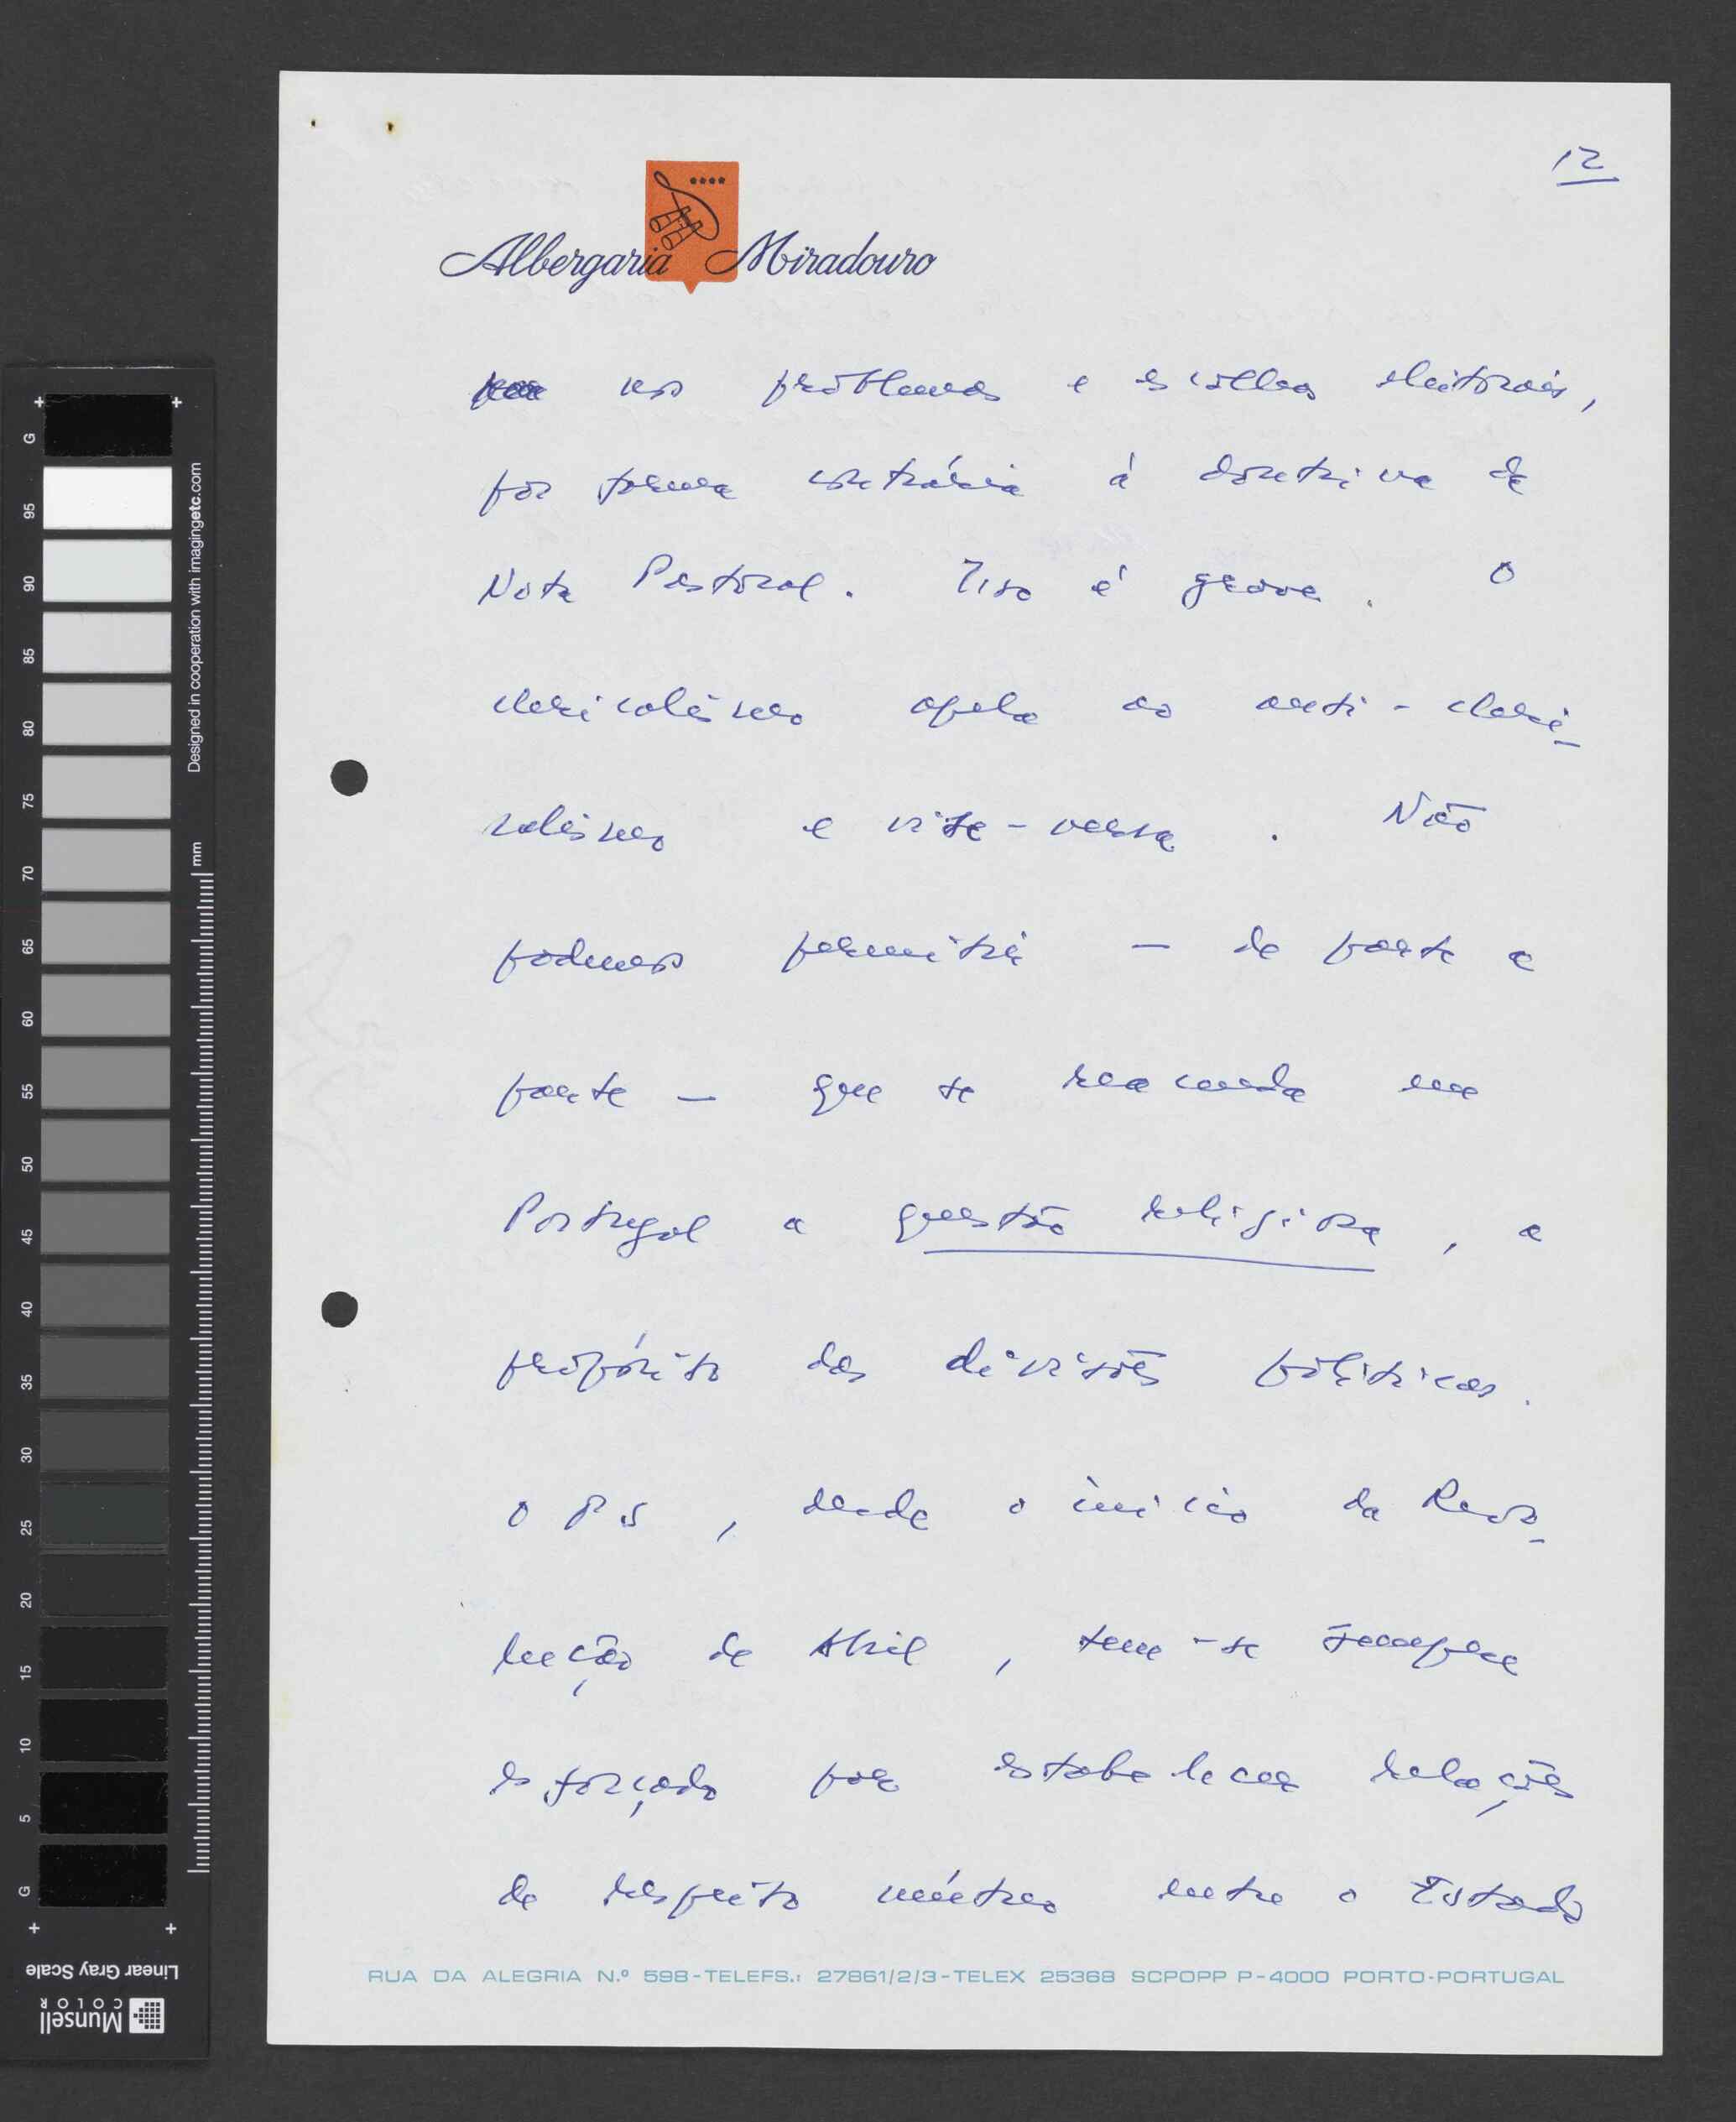 12
Albergaria Miradouro
nos problemas e escolhas eleitorais,
por forma contrária à doutrina da
Nota Pastoral. Isso é grave. O
clericalismo apela ao anti-cleri-
calismo e vice-versa. Não
podemos permitir — de parte a
parte — que se reacenda em
Portugal a questão religiosa, a
propósito das divisões políticas.
O PS, desde o início da Revo-
lução de Abril, tem-se sempre
esforçado por estabelecer relações
de respeito mútuo entre o Estado
RUA DA ALEGRIA N.º 598-TELEFS.: 27861/2/3-TELEX 25368 SCPOPP P-4000 PORTO-PORTUGAL
Designed in cooperation with imagingetc.com
mm
G
95
90
85
80
75
70
65
60
55
50
45
40
35
30
25
20
15
10
5
G
Linear Gray Scale
Munsell
COLOR